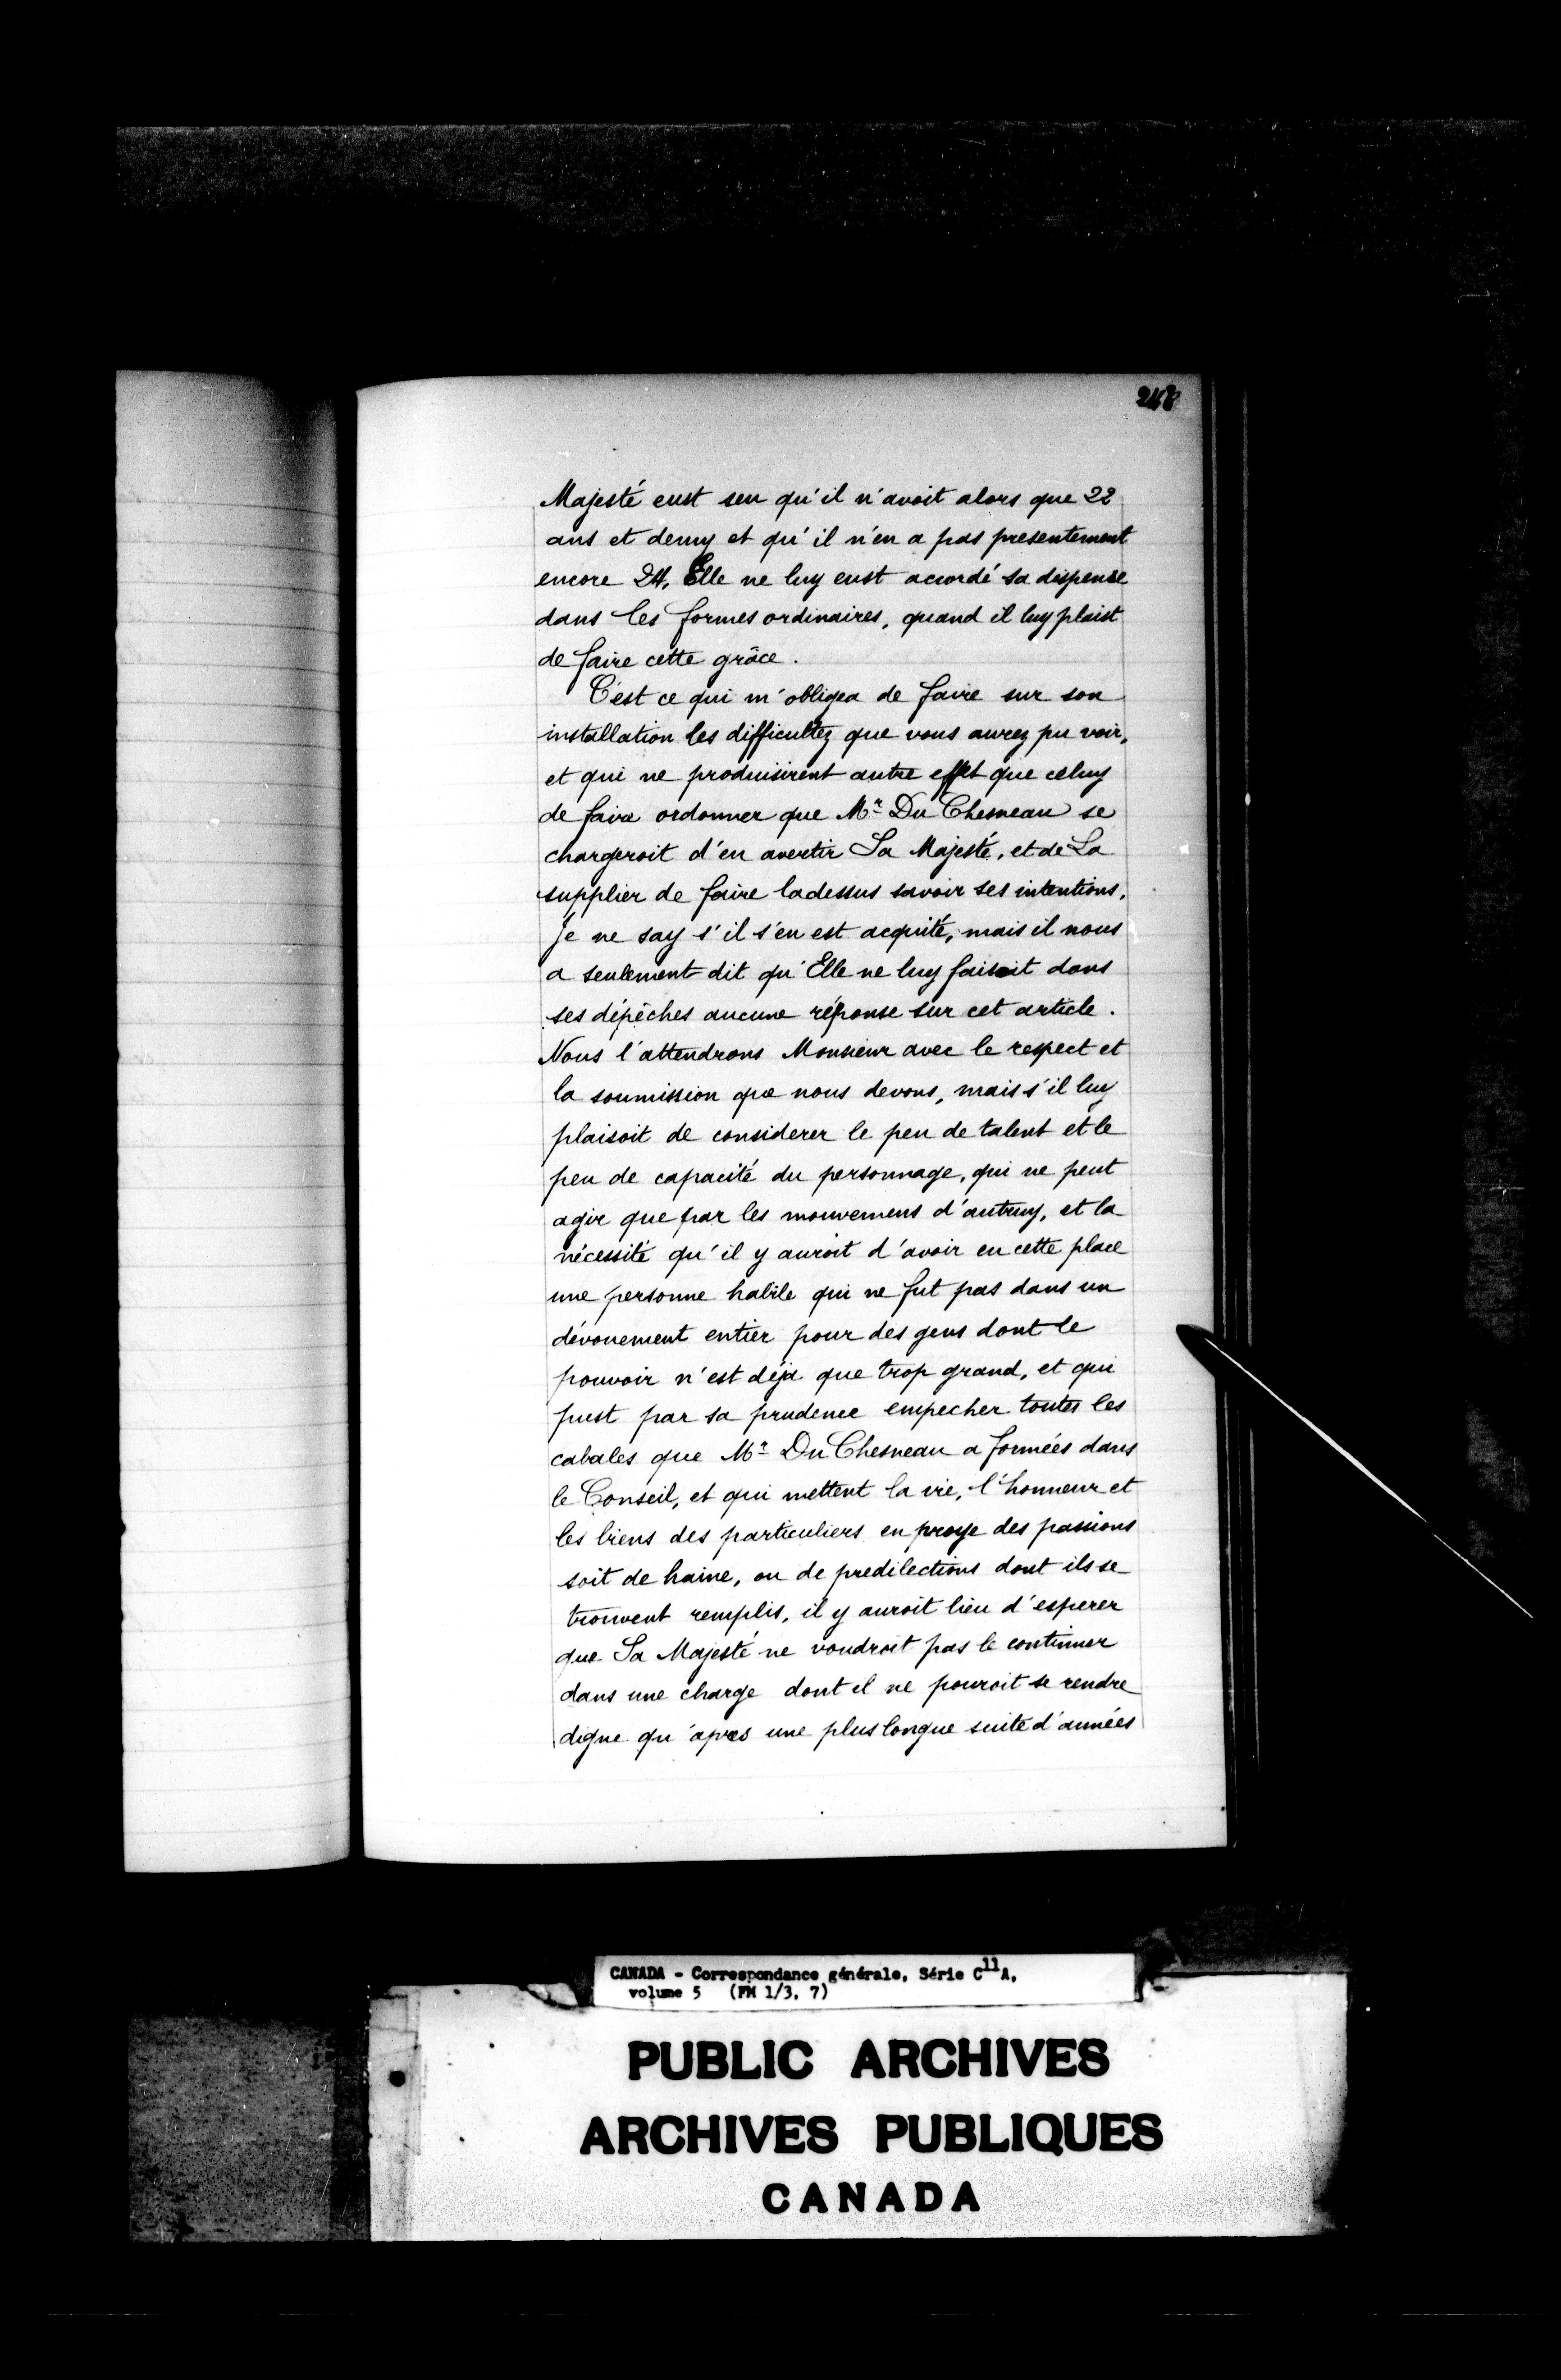 248
Majesté eust seu qu'il n'avoit alors que 22
ans et demy et qu'il n'en a pas presentement
encore 24, Elle ne luy eust accordé sa dispense
dans les formes ordinaires, quand il luy plaist
de faire cette grâce.
C'est ce qui m'obligea de faire sur son
installation les difficultez que vous aurez pu voir,
et qui ne produisirent autre effet que celuy
de faire ordonner que Mr Du Chesneau se
chargeroit d'en avertir Sa Majesté, et de La
supplier de faire ladessus savoir ses intentions.
Je ne say s'il s'en est acquité, mais il nous
a seulement dit qu'Elle ne luy faisoit dans
ses dépêches aucune réponse sur cet article.
Nous l'attendrons Monsieur avec le respect et
la soumission que nous devons, mais s'il luy
plaisoit de considerer le peu de talent et le
peu de capacité du personnage, qui ne peut
agir que par les mouvemens d'autruy, et la
nécessité qu'il y auroit d'avoir en cette place
une personne habile qui ne fut pas dans un
dévouement entier pour des gens dont le
pouvoir n'est déja que trop grand, et qui
pust par sa prudence empecher toutes les
cabales que Mr Du Chesneau a formées dans
le Conseil, et qui mettent la vie, l'honneur et
les biens des particuliers en proye des passions
soit de haine, ou de predilections dont ils se
trouvent remplis, il y auroit lieu d'esperer
que Sa Majesté ne voudroit pas le continuer
dans une charge dont il ne pouroit se rendre
digne qu'apres une plus longue suite d'années
CANADA - Correspondance générale, Série C11A,
volume 5 (FM 1/3, 7)
PUBLIC ARCHIVES
ARCHIVES PUBLIQUES
CANADA